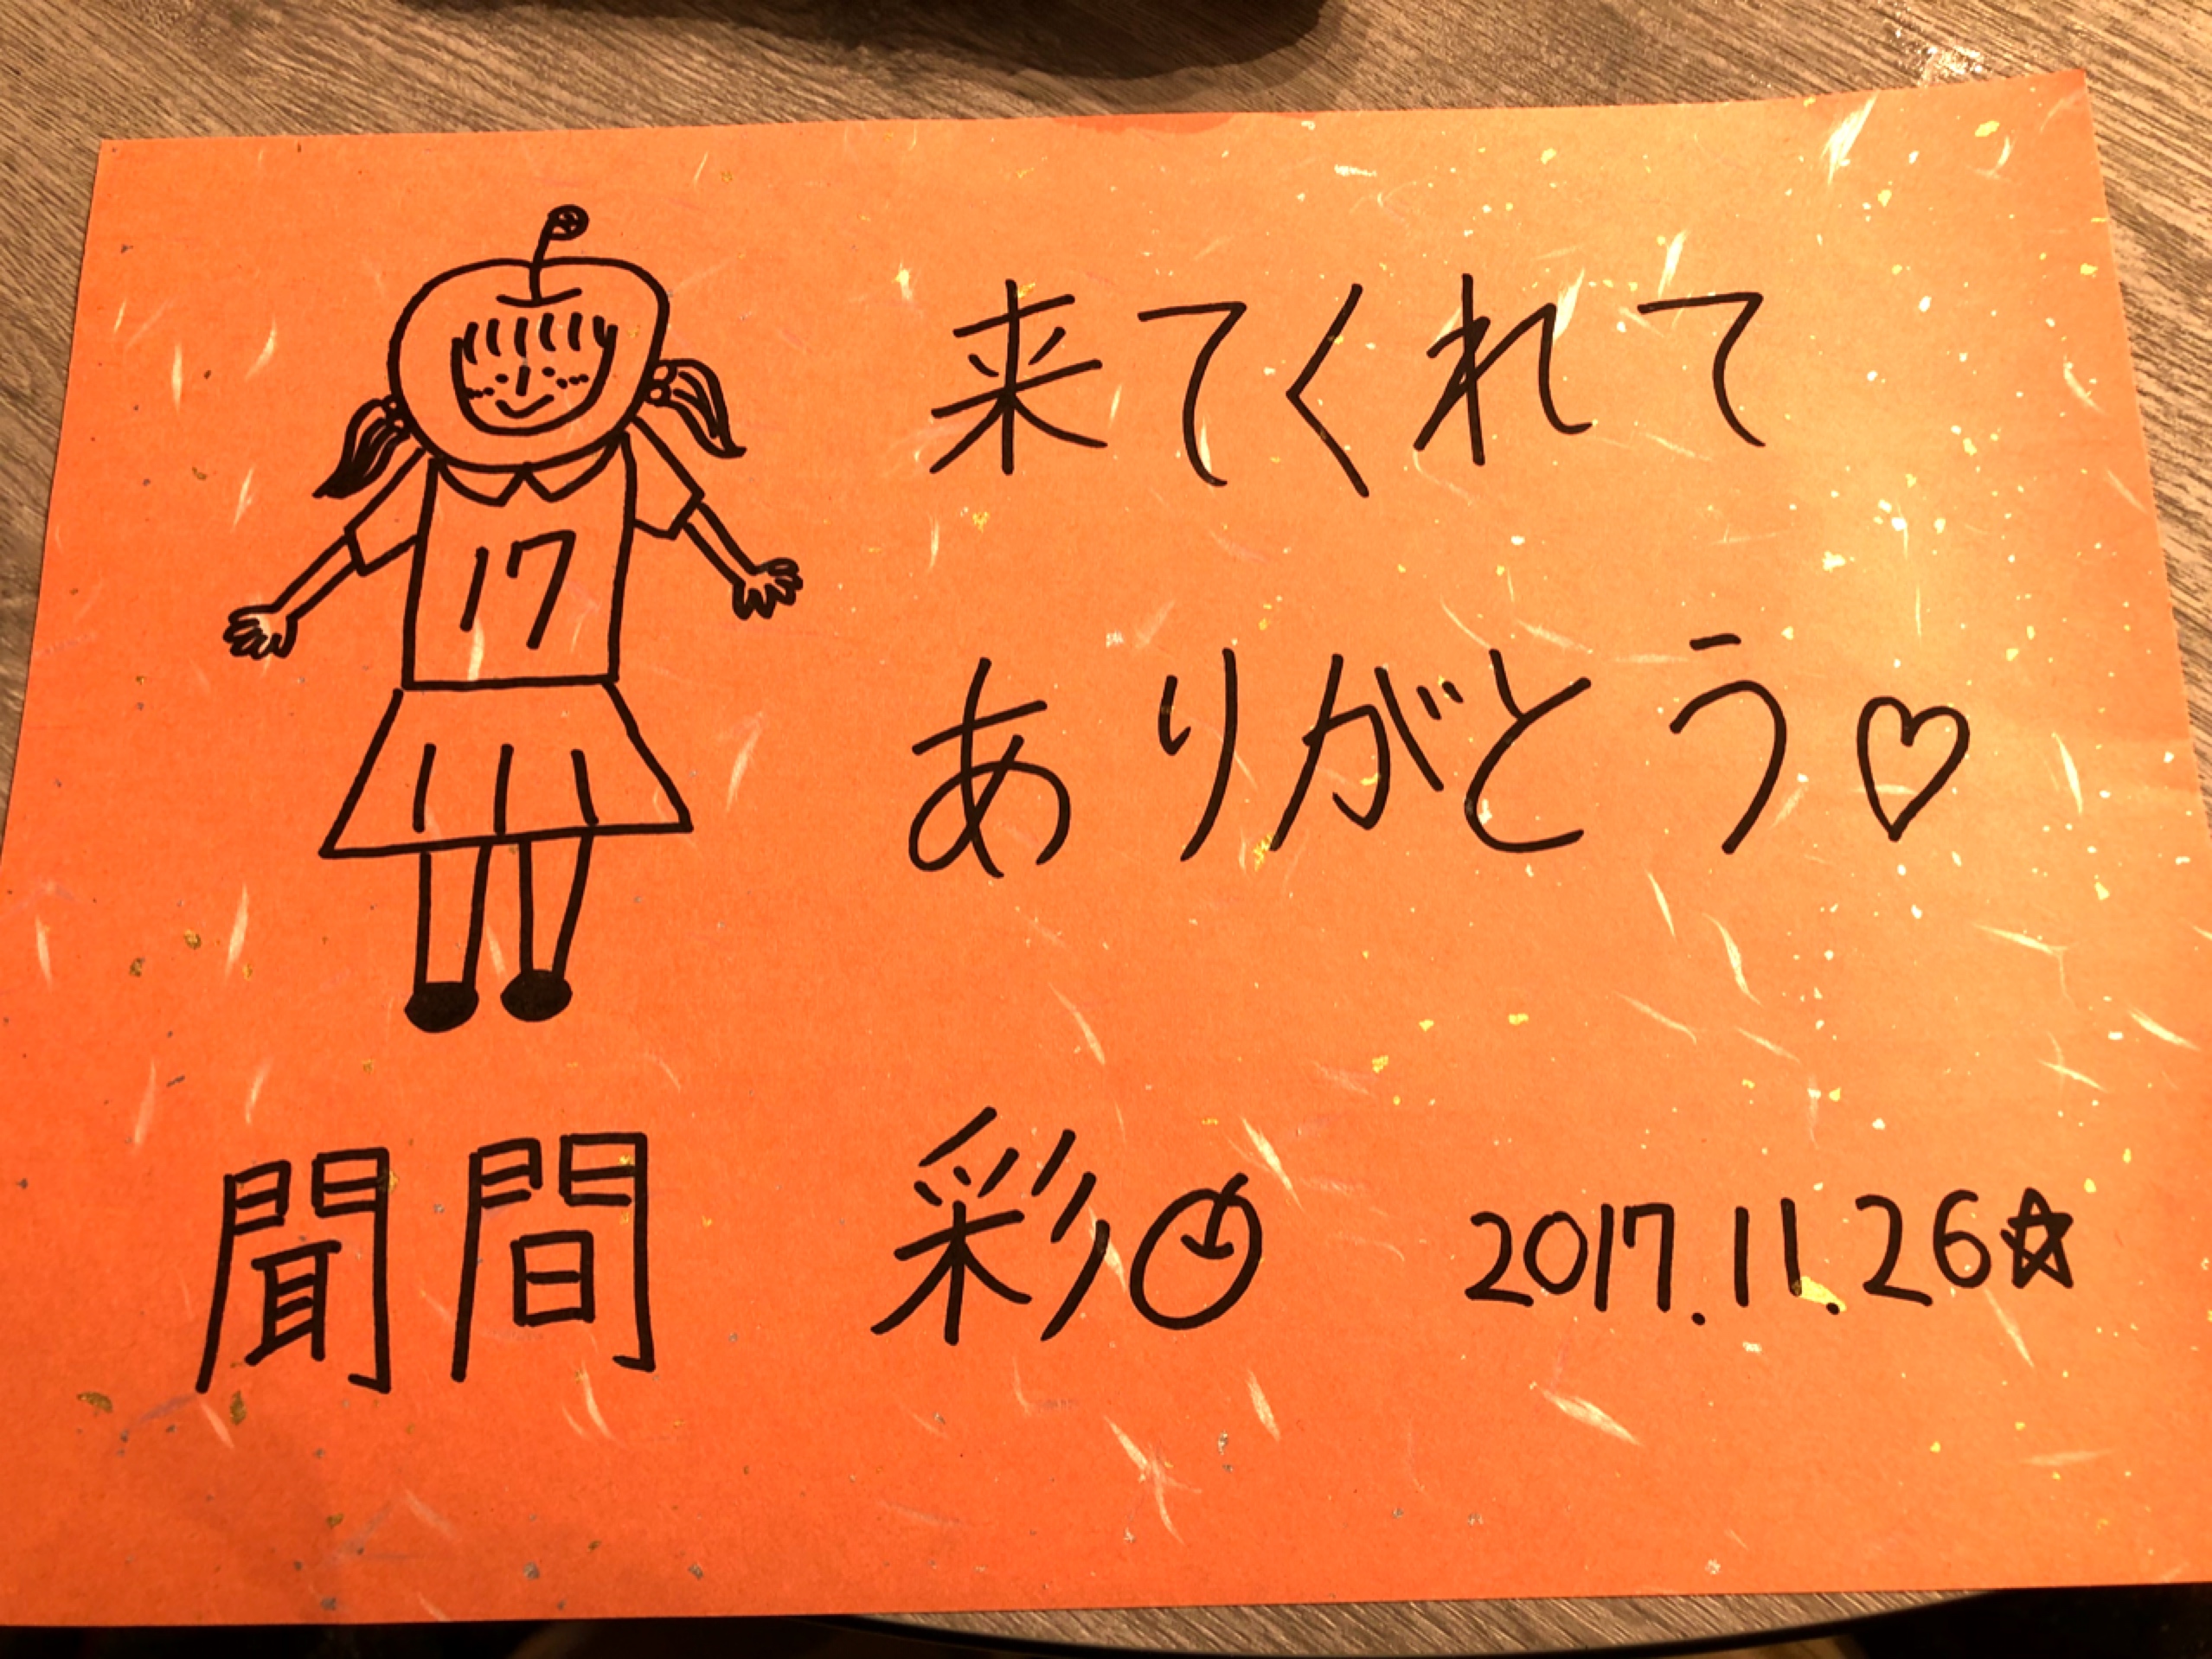 17
来てくれて
ありがとう♡
聞間 彩 2017.11.26☆